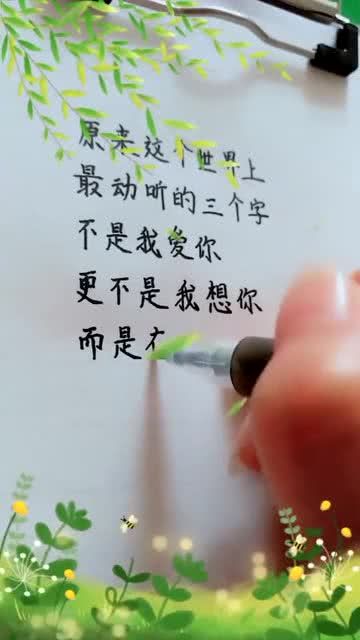 原来这个世界上
最动听的三个字
不是我爱你
更不是我想你
而是